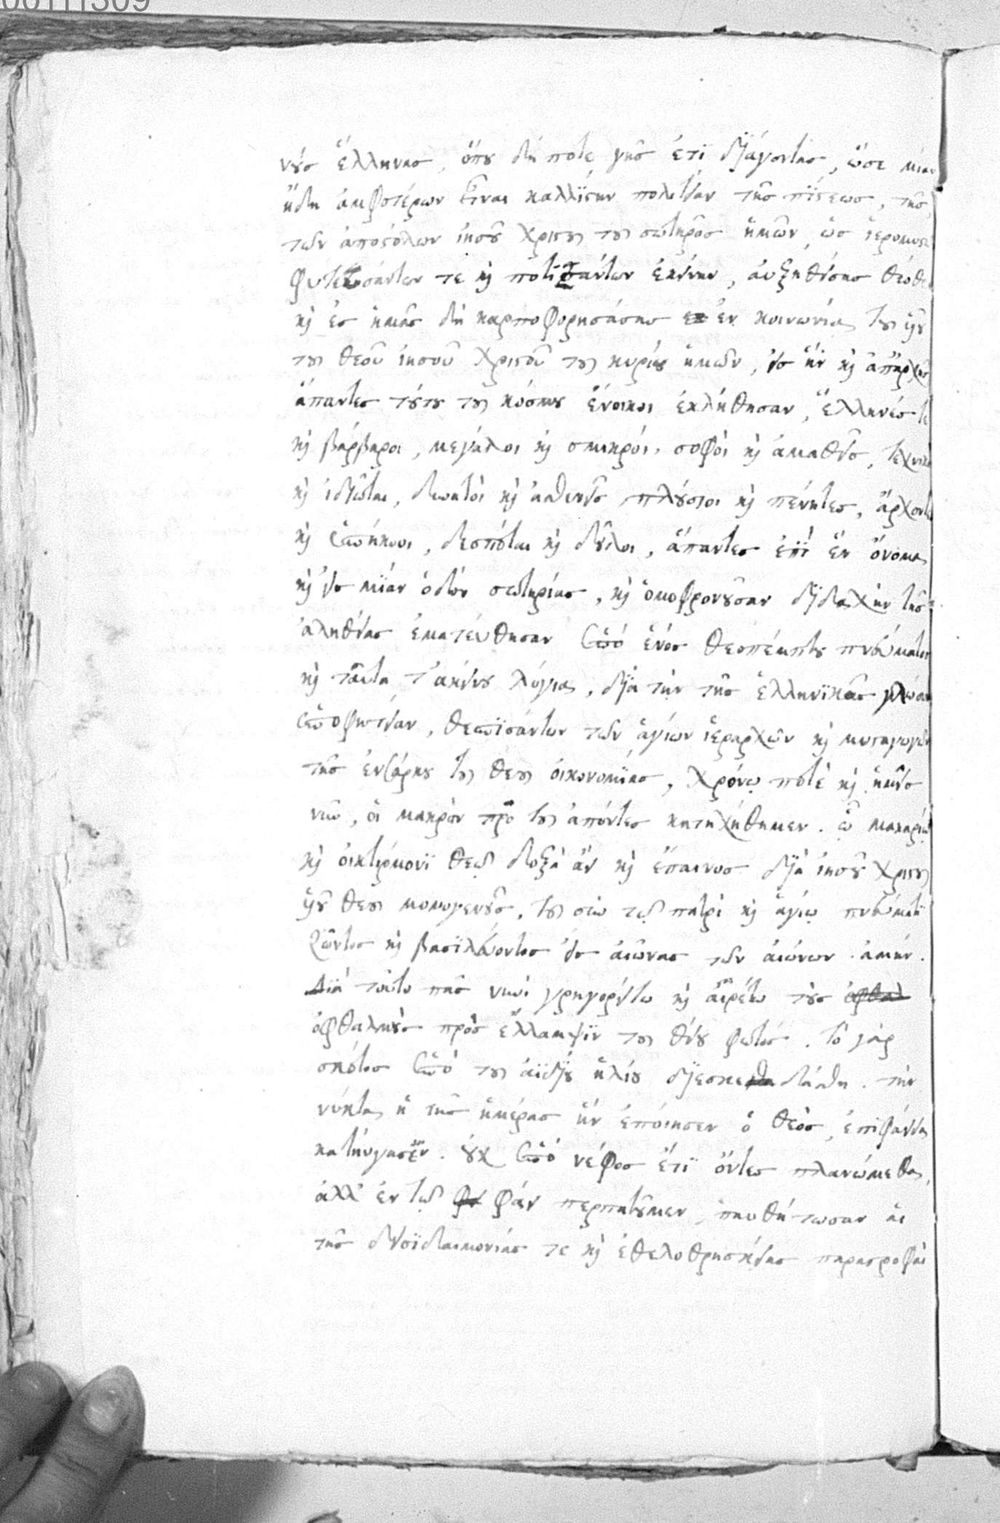 00111309
νοὺς ἕλληνας, ὅπου δή ποτε γῆς ἔτι διάγοντας, ὥστε μίαν
ἤδη ἀμφοτέρων εἶναι καλλίστην πολιτείαν τῆς πίστεως, τῆς
τῶν ἀποστόλων ἰησοῦ χριστοῦ τοῦ σωτῆρος ἡμῶν, ὡς
φυτευσάντων τε καὶ ποτισάντων ἐκείνην, αὐξηθείσης θεόθεν
καὶ ἐς ἡμᾶς δὴ καρποφορησάσης ἐν κοινωνίᾳ τοῦ υἱοῦ
τοῦ θεοῦ ἰησοῦ χριστοῦ τοῦ κυρίου ἡμῶν, εἰς ἣν καὶ ἀπαρχῆς
ἅπαντες τούτου τοῦ κόσμου ἔνοικοι ἐκλήθησαν, ἕλληνές τε
καὶ βάρβαροι, μεγάλοι καὶ σμικροί, σοφοὶ καὶ ἀμαθεῖς,
καὶ ἰδιῶται, δυνατοὶ καὶ ἀσθενεῖς, πλούσιοι καὶ πένητες, ἄρχοντες
καὶ ὑπήκοοι, δεσπόται καὶ δοῦλοι, ἅπαντες ἐπὶ ἓν ὄνομα
καὶ εἰς μίαν ὁδὸν σωτηρίας, καὶ ὁμοφρονοῦσαν διδαχὴν τῆς
ἀληθείας ἐματεύθησαν ὑπὸ ἑνὸς θεοπέμπτου πνεύματος
καὶ ταῦτα τἀκείνου λόγια, διὰ τὴν τῆς ἑλληνικᾶς γλώσσης
ὑποφητείαν, θεσπισάντων τῶν ἁγίων ἱεραρχῶν καὶ μυσταγωγῶν
τῆς ἐνσάρκου τοῦ θεοῦ οἰκονομίας, χρόνῳ ποτὲ καὶ ἡμεῖς
νῦν, οἱ μακρὸν πρὸ τοῦ ἀπόντες κατηχήθημεν. ᾧ μακαρίῳ
καὶ οἰκτίρμονι θεῷ δόξα ἂν καὶ ἔπαινος διὰ ἰησοῦ χριστοῦ
υἱοῦ θεοῦ μονογενοῦς, τοῦ σὺν τῷ πατρὶ καὶ ἁγίῳ πνεύματι
ζῶντος καὶ βασιλεύοντος εἰς αἰῶνας τῶν αἰώνων. ἀμήν.
Διὰ τοῦτο πᾶς νυνὶ γρηγορείτω καὶ αἱρέτω τοὺς ὀφθαλ
ὀφθαλμοὺς πρὸς ἔλλαμψιν τοῦ θείου φωτός. τὸ γὰρ
σκότος ὑπὸ τοῦ ἀϊδίου ἡλίου διεσκεδάσθη. τὴν
νύκτα ἡ τῆς ἡμέρας ἣν ἐποίησεν ὁ θεὸς, ἐπιφάνεια
κατηύγασεν. οὐχ ὑπὸ νέφος ἔτι ὄντες πλανώμεθα,
ἀλλ' ἐν τῷ φάει περπατοῦμεν, παυθήτωσαν αἱ
τῆς δεισιδαιμονίας τε καὶ ἐθελοθρησκείας παραστροφαὶ